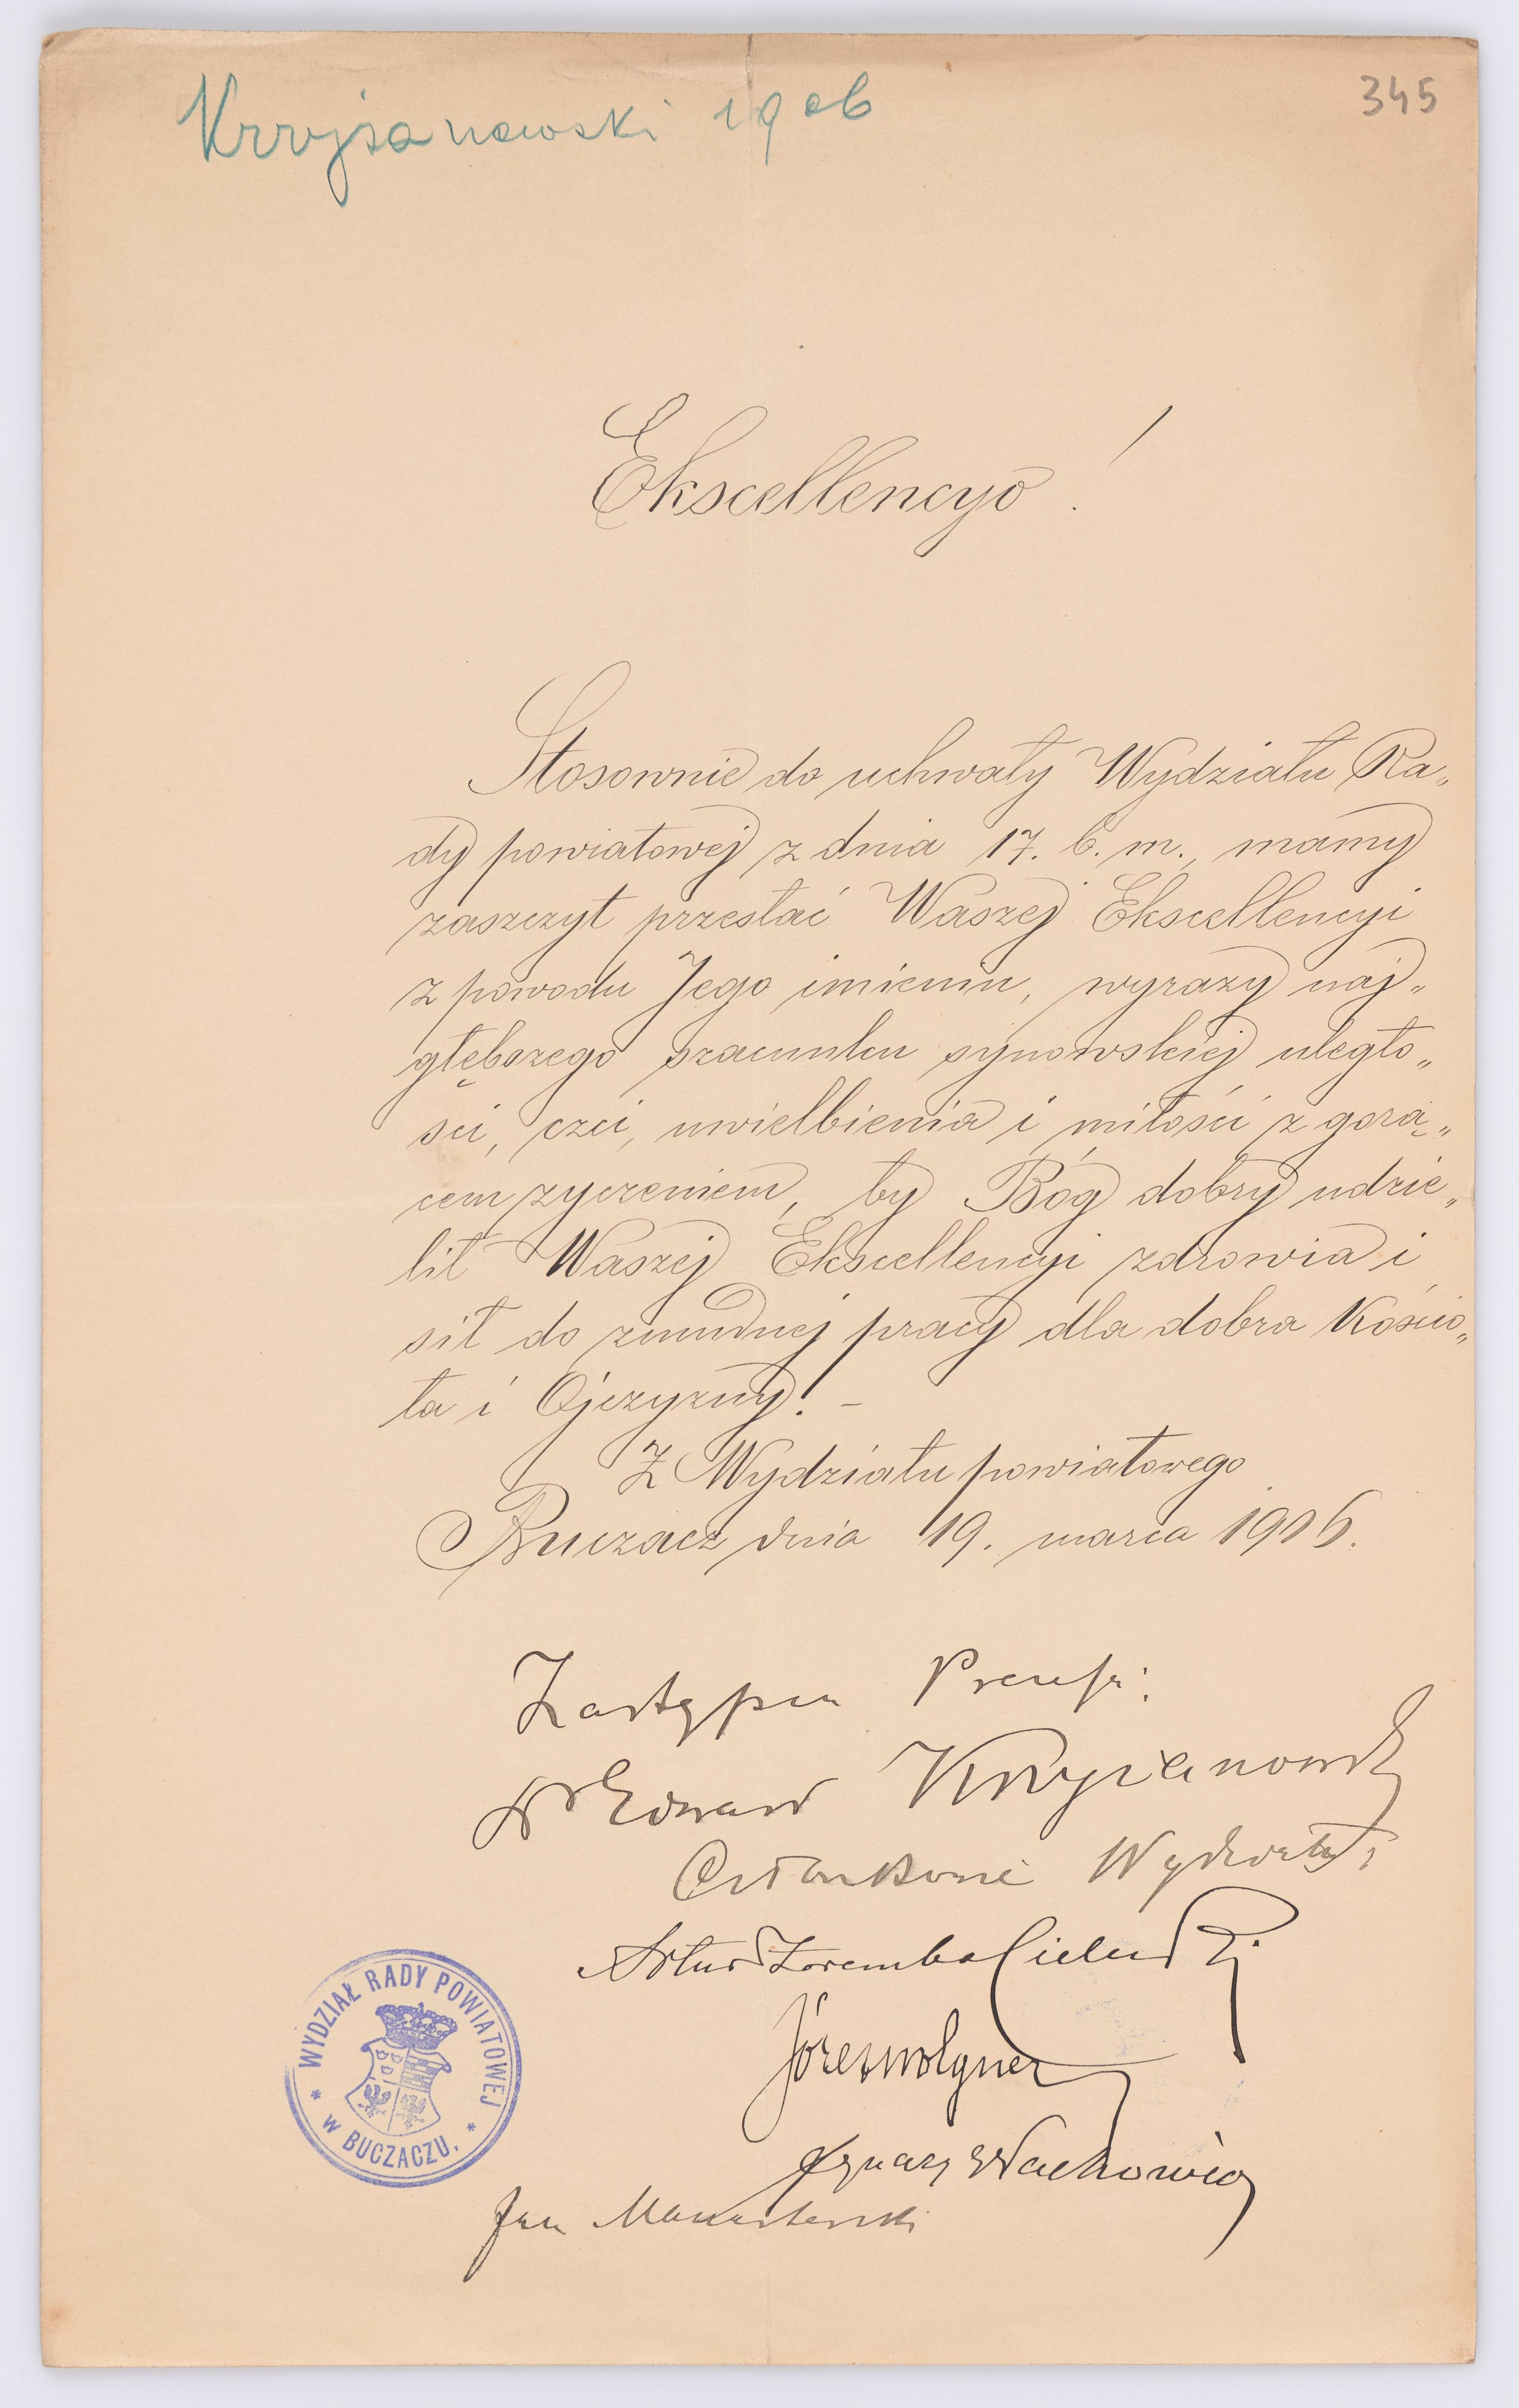 Krzyżanowski 1906
345
Ekscellencyo!
Stosownie do uchwały Wydziału Ra„
dy powiatowej z dnia 17. b. m., mamy
zaszczyt przesłać Waszej Ekscellencyi
z powodu Jego imienin, wyrazy naj„
głębszego szacunku synowskiej uległo„
ści, czci, uwielbienia i miłości z gorą„
cem życzeniem, by Bóg dobry udzie„
lił Waszej Ekscellencyi zdrowia i
sił do żmudnej pracy dla dobra Kościo„
ła i Ojczyzny! –
Z Wydziału powiatowego
Buczacz dnia 19. marca 1906.
Zastępca Prezesa:
Dr Edward Krzyżanowski
Członkowie Wydziału:
Artur Zaremba Cielecki
Józef Wolgner
Ignacy Wachowicz
Jan Manasterski
* WYDZIAŁ RADY POWIATOWEJ *
W BUCZACZU.